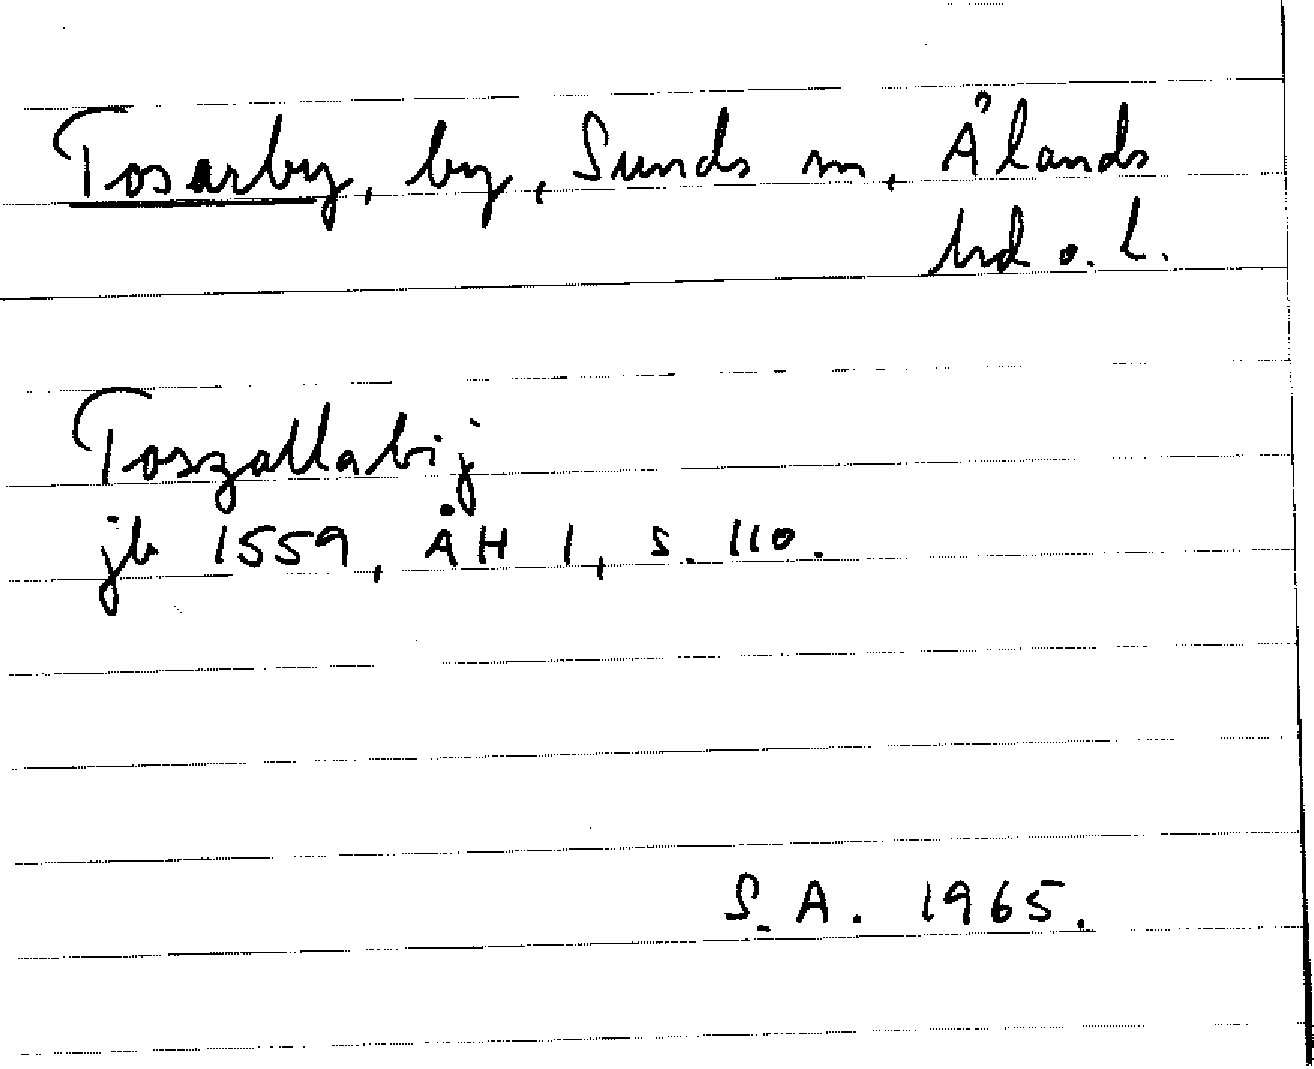 Tosarby, by, Sunds sn, Ålands
hd o. l.
Toszallabij
jb 1559, ÅH 1, s. 110.
S. A. 1965.